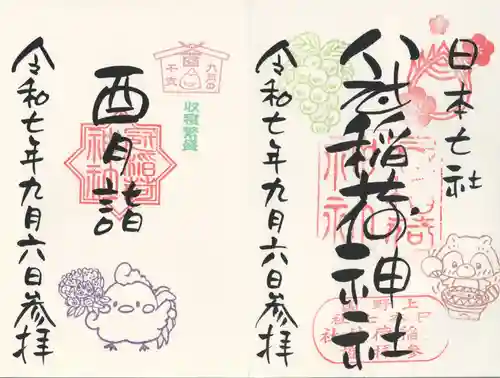 日本七社
冠稲荷神社
令和七年九月六日参拝
九月の
干支
収穫繁盛
酉月詣
冠稲荷
神社
令和七年九月六日参拝